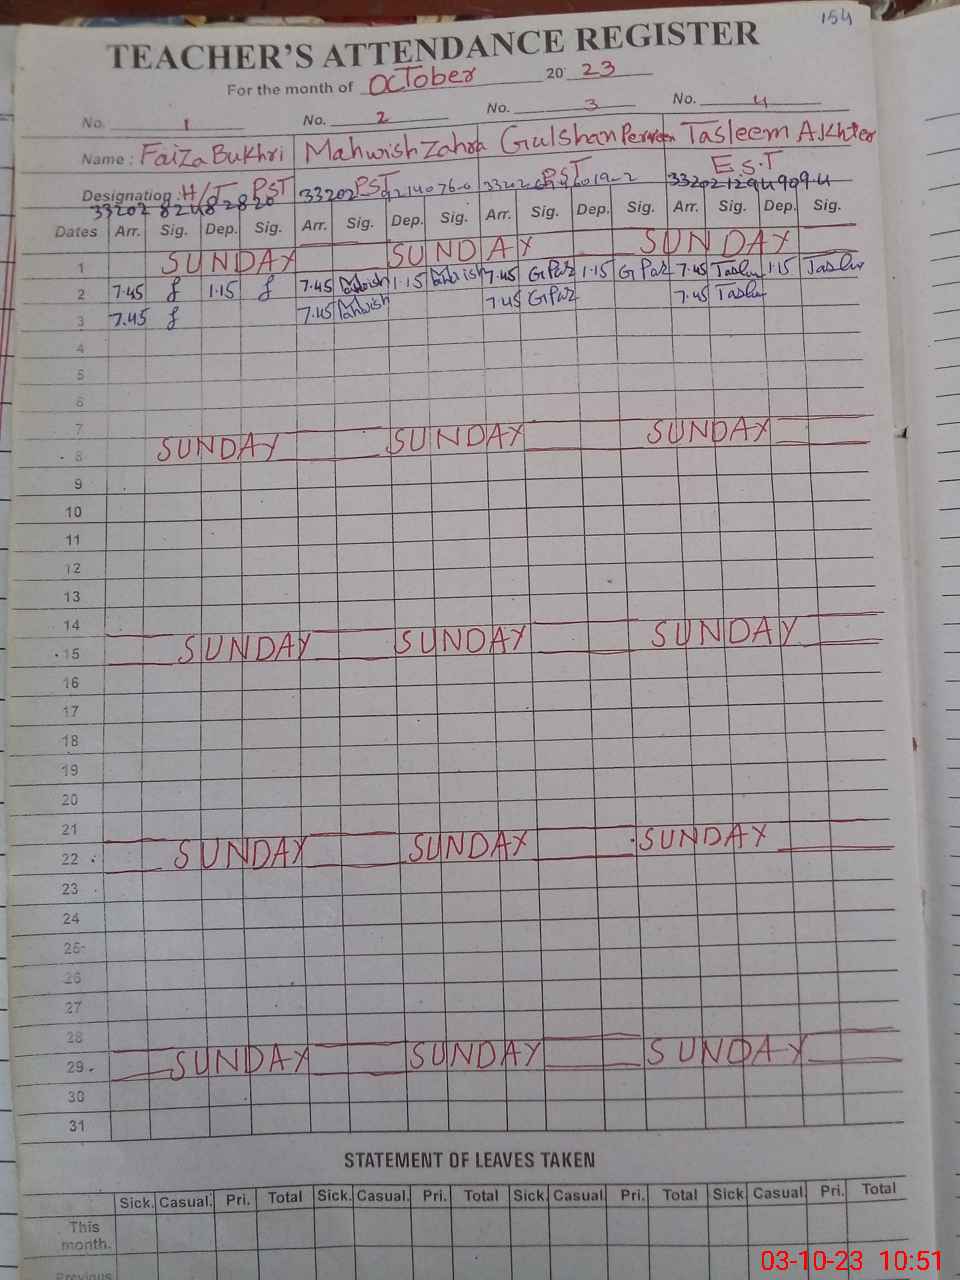 154
TEACHER'S ATTENDANCE REGISTER
For the month of October 20 23
No. 1 No. 2 No. 3 No. 4
Name : Faiza Bukhri Mahwish Zahra Gulshan Perveen Tasleem Akhter
Designation : H/T PST PST PST E.S.T
Dates Arr. Sig. Dep. Sig. Arr. Sig. Dep. Sig. Arr. Sig. Dep. Sig. Arr. Sig. Dep. Sig.
1 SUNDAY SUNDAY SUNDAY
2 7.45 1.15 7.45 1.15 7.45 1.15 7.45 1.15
3 7.45 7.45 7.45 7.45
4
5
6
7
8 SUNDAY SUNDAY SUNDAY
9
10
11
12
13
14
15 SUNDAY SUNDAY SUNDAY
16
17
18
19
20
21
22 SUNDAY SUNDAY SUNDAY
23
24
25
26
27
28
29 SUNDAY SUNDAY SUNDAY
30
31
STATEMENT OF LEAVES TAKEN
Sick. Casual. Pri. Total Sick. Casual. Pri. Total Sick. Casual Pri. Total Sick Casual Pri. Total
This
month.
Previous
03-10-23 10:51